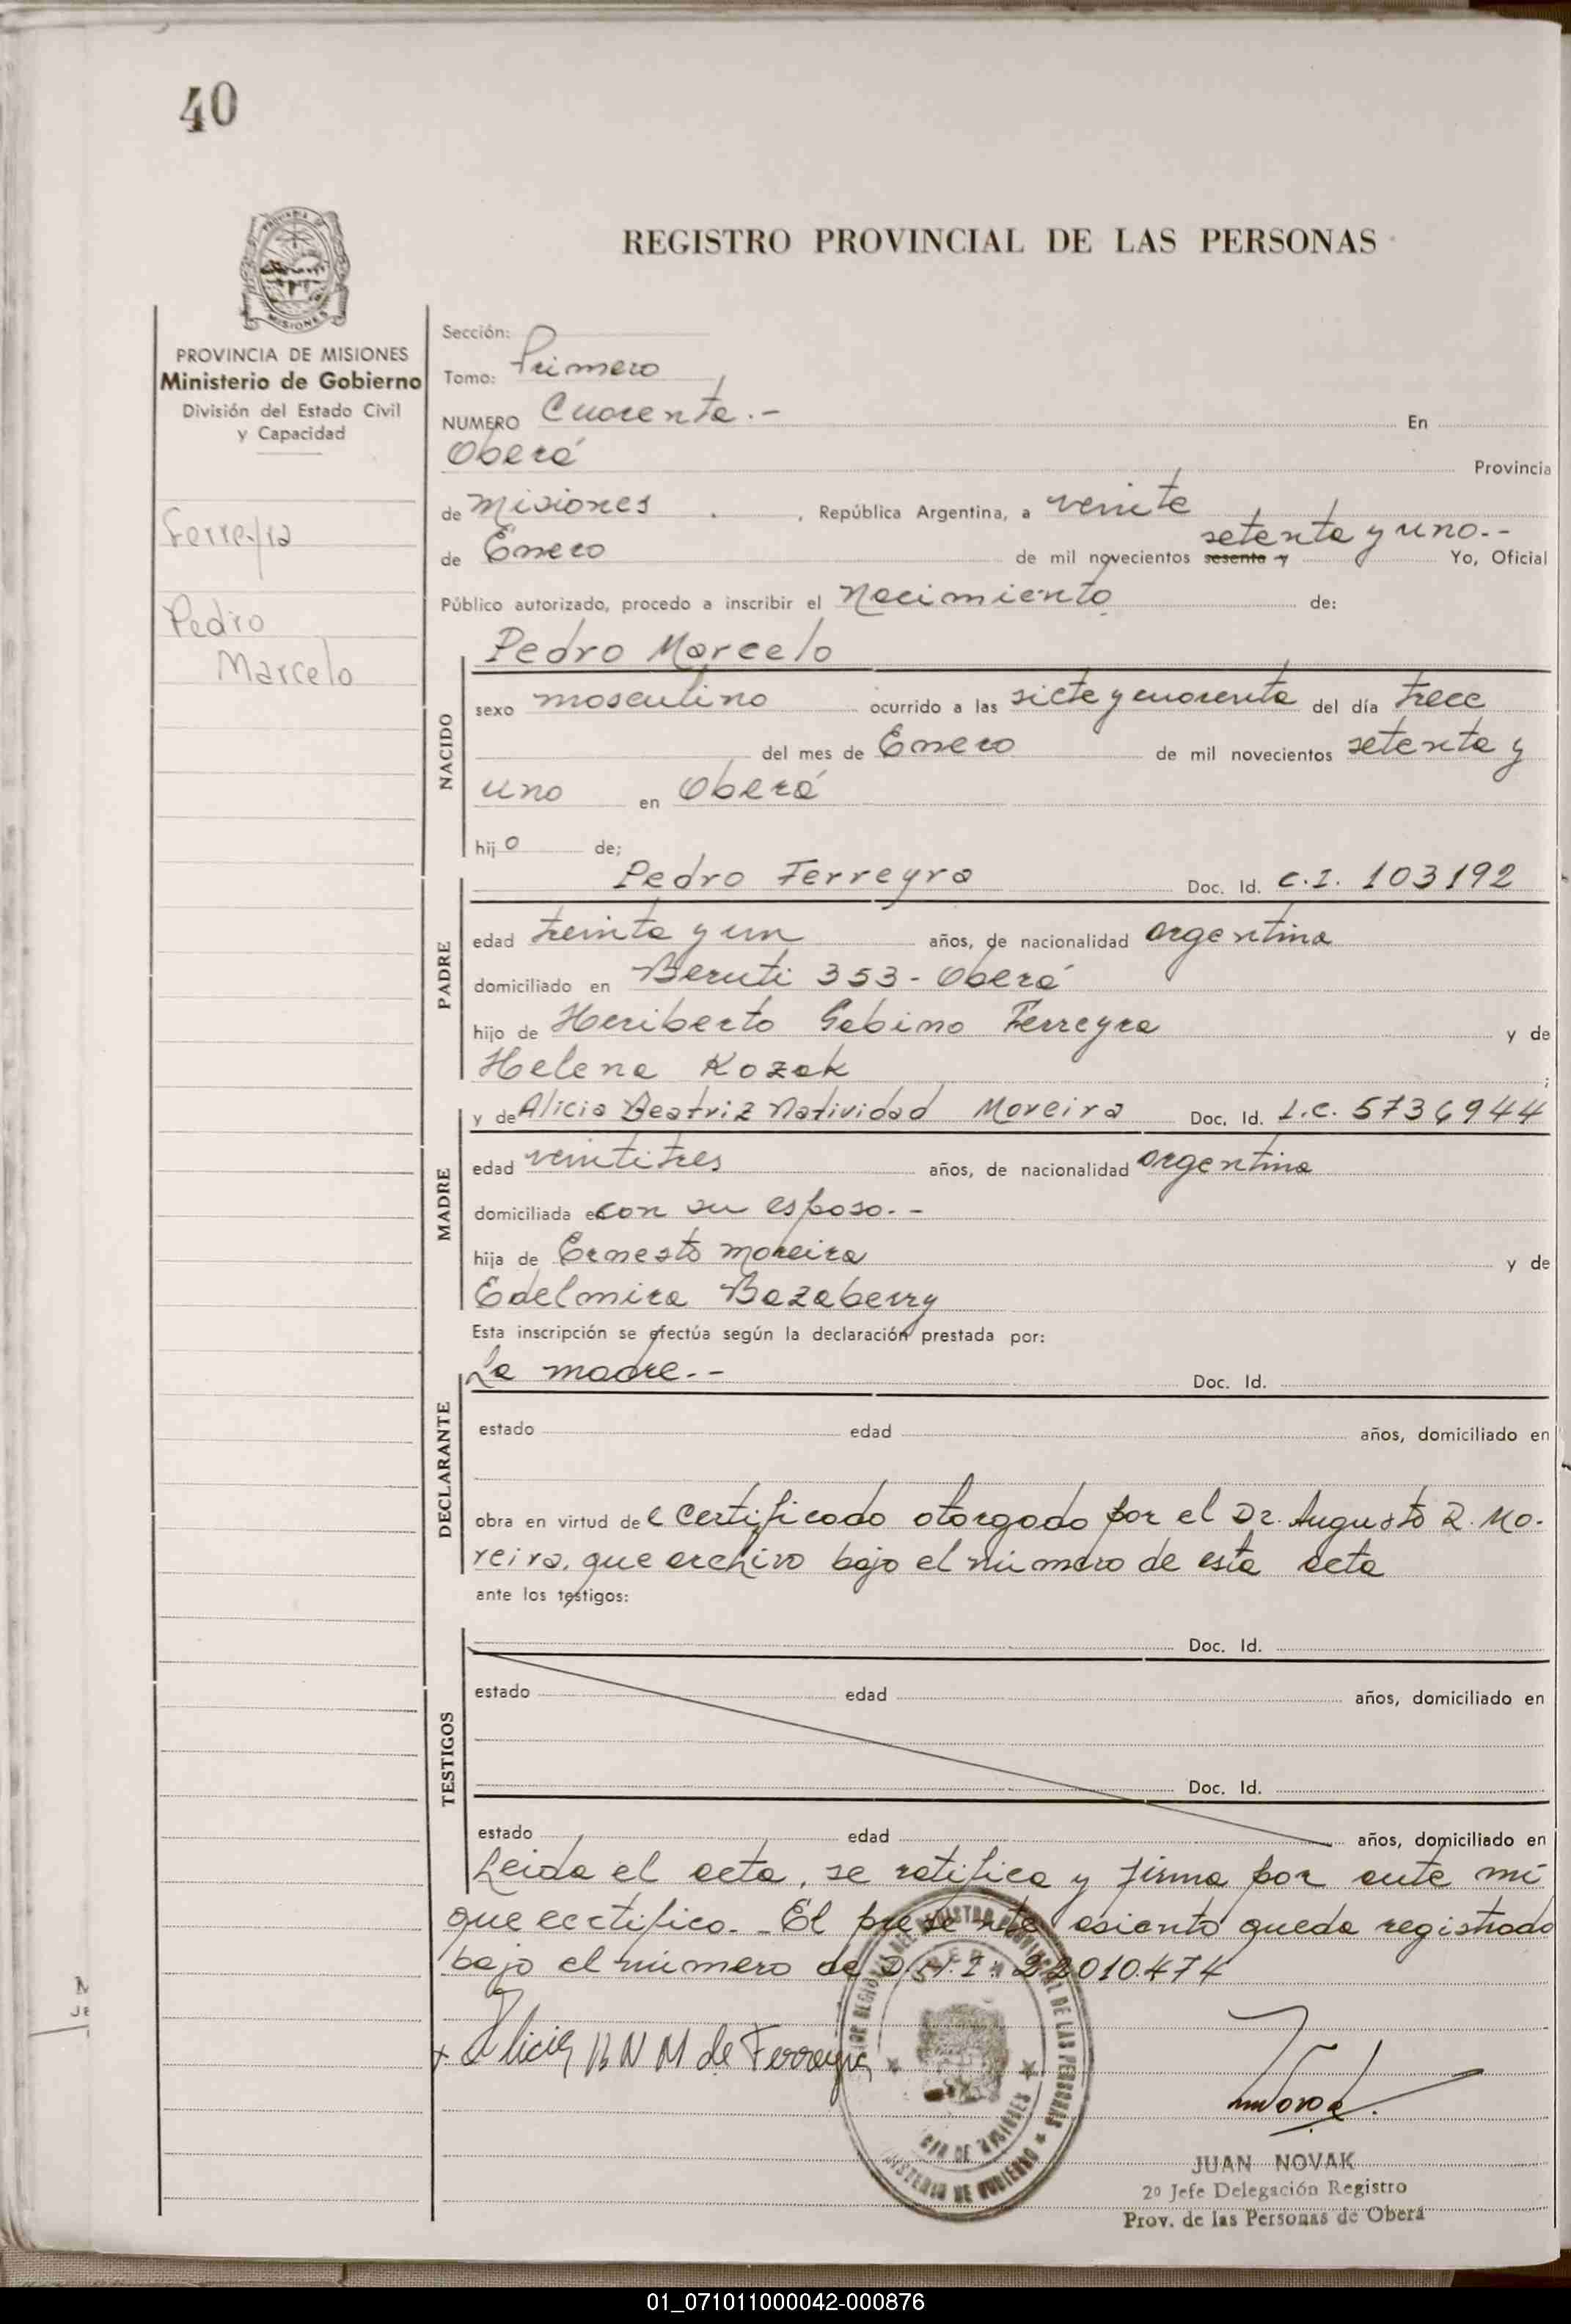 40
REGISTRO PROVINCIAL DE LAS PERSONAS
PROVINCIA DE MISIONES
Ministerio de Gobierno
División del Estado Civil
y Capacidad
Ferreyra
Pedro
Marcelo
Sección:
Tomo: Primero
NUMERO Cuarenta.- En
Oberá Provincia
de Misiones , República Argentina, a veinte
de Enero de mil novecientos sesenta y setenta y uno.- Yo, Oficial
Público autorizado, procedo a inscribir el Nacimiento de:
NACIDO
Pedro Marcelo
sexo masculino ocurrido a las siete y cuarenta del día trece
del mes de Enero de mil novecientos setenta y
uno en Oberá
hijo de;
PADRE
Pedro Ferreyra Doc. Id. C.I. 103192
edad treinta y un años, de nacionalidad argentina
domiciliado en Beruti 353 - Oberá
hijo de Heriberto Gabino Ferreyra y de
Helena Kozak ;
MADRE
y de Alicia Beatriz Natividad Moreira Doc. Id. L.C. 5736944
edad veintitres años, de nacionalidad argentina
domiciliada en con su esposo.-
hija de Ernesto Moreira y de
Edelmira Bazaberry
Esta inscripción se efectúa según la declaración prestada por:
DECLARANTE
La madre.- Doc. Id.
estado edad años, domiciliado en
obra en virtud del certificado otorgado por el Dr. Augusto R. Mo-
reira, que archivo bajo el número de esta acta
ante los testigos:
TESTIGOS
Doc. Id.
estado edad años, domiciliado en
Doc. Id.
estado edad años, domiciliado en
Leida el acta, se ratifica y firma por ante mi
que certifico.- El presente asiento queda registrado
bajo el número de D.N.I: 22010.474
x Alicia B N M de Ferreyra
JUAN NOVAK
2º Jefe Delegación Registro
Prov. de las Personas de Oberá
01_071011000042-000876